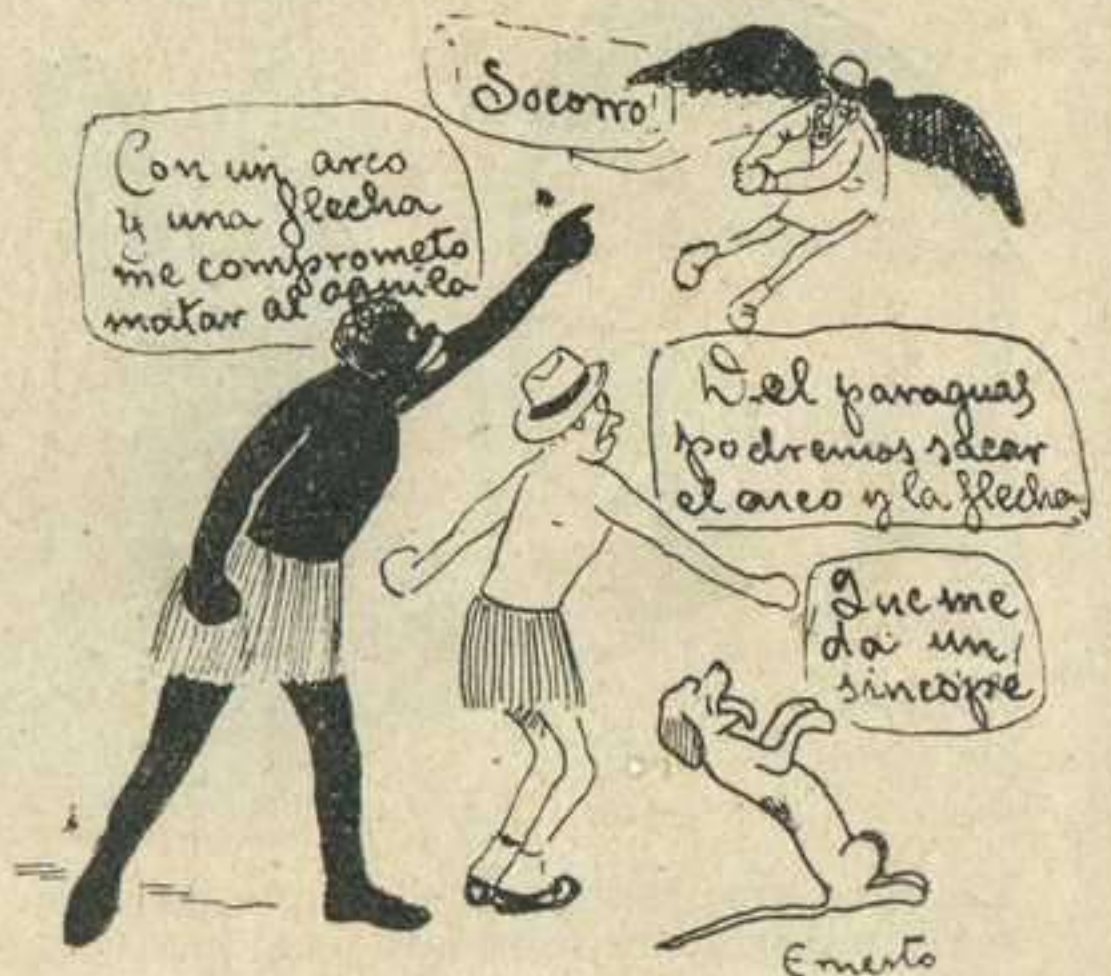 Socorro!
Con un arco
y una flecha
me comprometo
matar al aguila
Del paraguas
podremos sacar
el arco y la flecha
Que me
da un
sincope
Ernesto